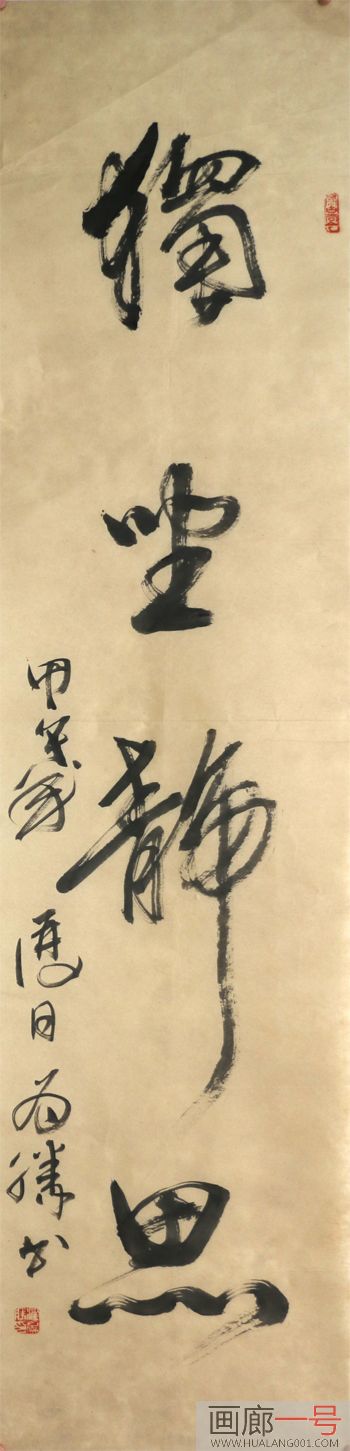 獨坐靜思
甲午歲 日 为勝书
画廊一号
WWW.HUALANG001.COM